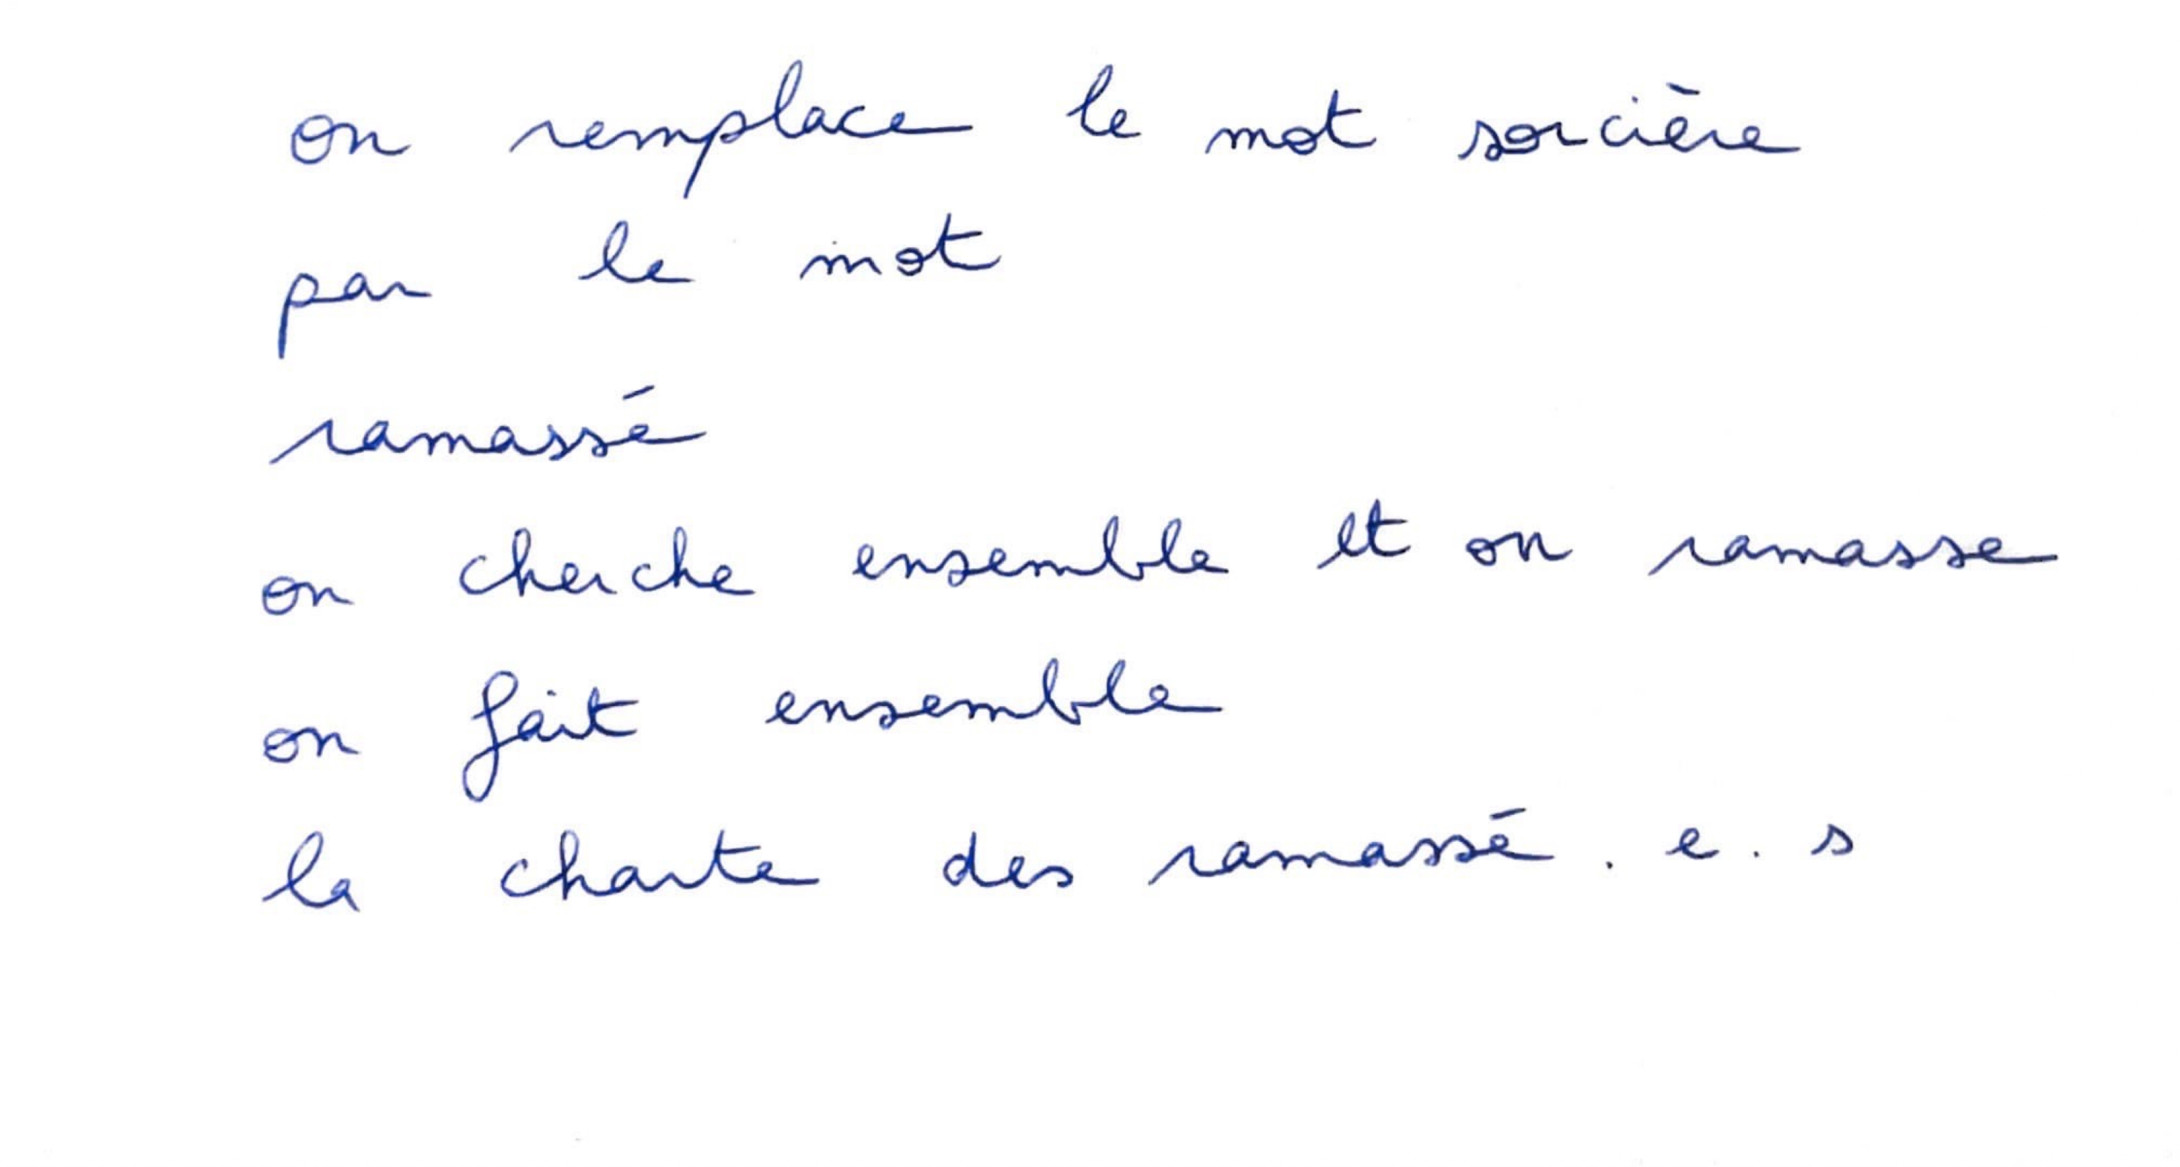 on remplace le mot sorcière
par le mot
ramassé
on cherche ensemble et on ramasse
on fait ensemble
la charte des ramassé . e . s